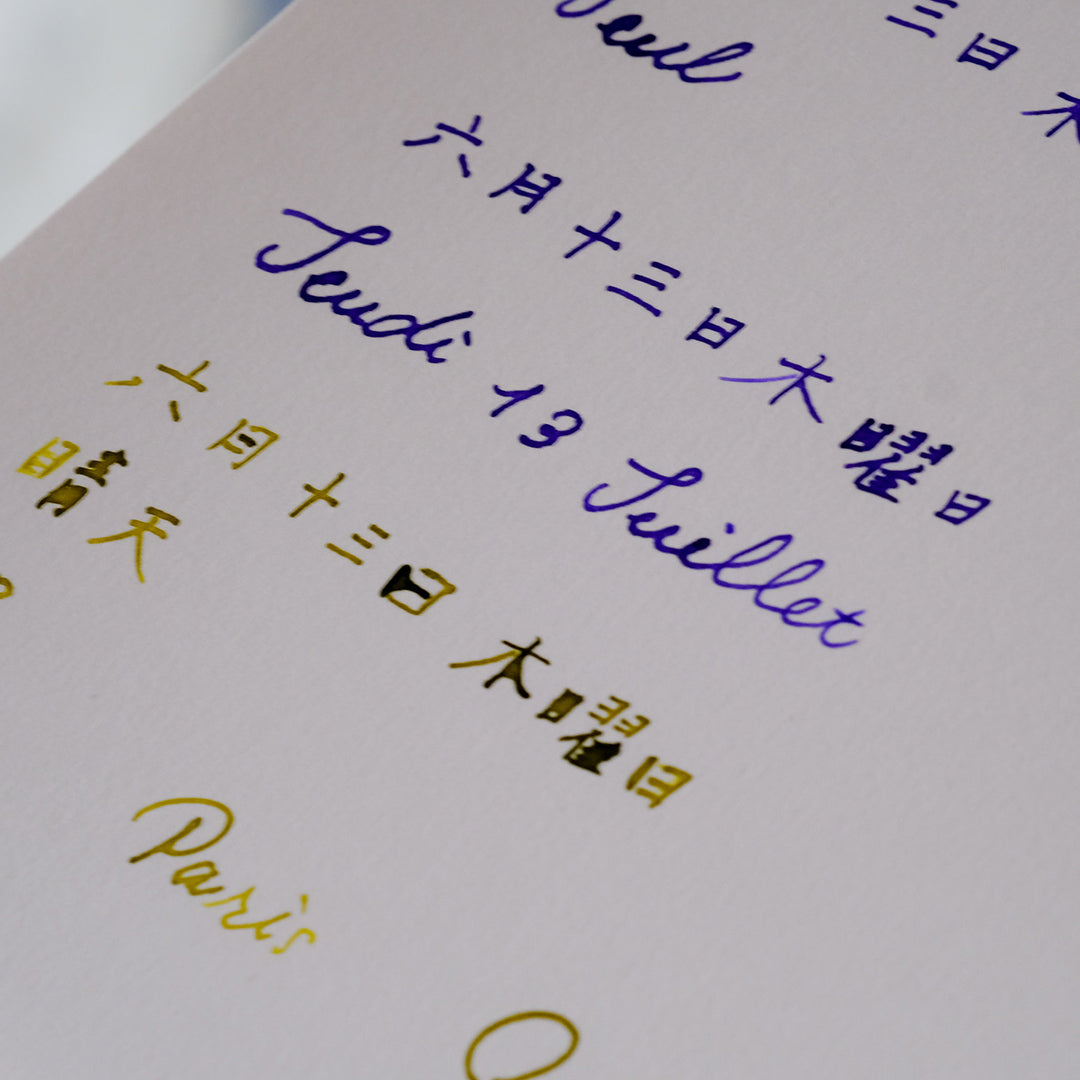 三日 木
六月十三日木曜日
Jeudi 13 Juillet
六月十三日 木曜日
晴天
Paris